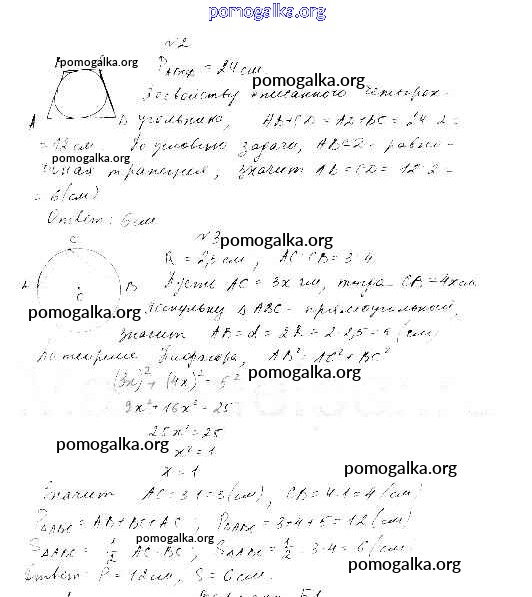 pomogalka.org
№2
P = 24 см
pomogalka.org
pomogalka.org
По свойству описанного четырех-
A D угольника, AB+CD = AD+BC = 24:2=
= 12 см. По условию задачи, ABCD - равно-
pomogalka.org
трапеция, значит AB=CD= 12:2=
= 6(см)
Ответ: 6см
№3
pomogalka.org
C
R = 2,5 см, AC:CB = 3:4
A B Пусть AC = 3x см, тогда CB = 4x см.
C
pomogalka.org
Поскольку Δ ABC - прямоугольный,
значит AB = d = 2R = 2·2,5 = 5 (см)
По теореме Пифагора, AB² = AC² + BC²
pomogalka.org
(3x)² + (4x)² = 5²
9x² + 16x² = 25
25x² = 25
pomogalka.org
x² = 1
x = 1
pomogalka.org
Значит AC = 3·1 = 3 (см), CB = 4·1 = 4 (см)
PΔABC = AB+BC+AC; PΔABC = 3+4+5 = 12 (см)
pomogalka.org
SΔABC = 1/2 AC·BC; SΔABC = 1/2·3·4 = 6 (см)
pomogalka.org
Ответ: P = 12 см, S = 6 см.